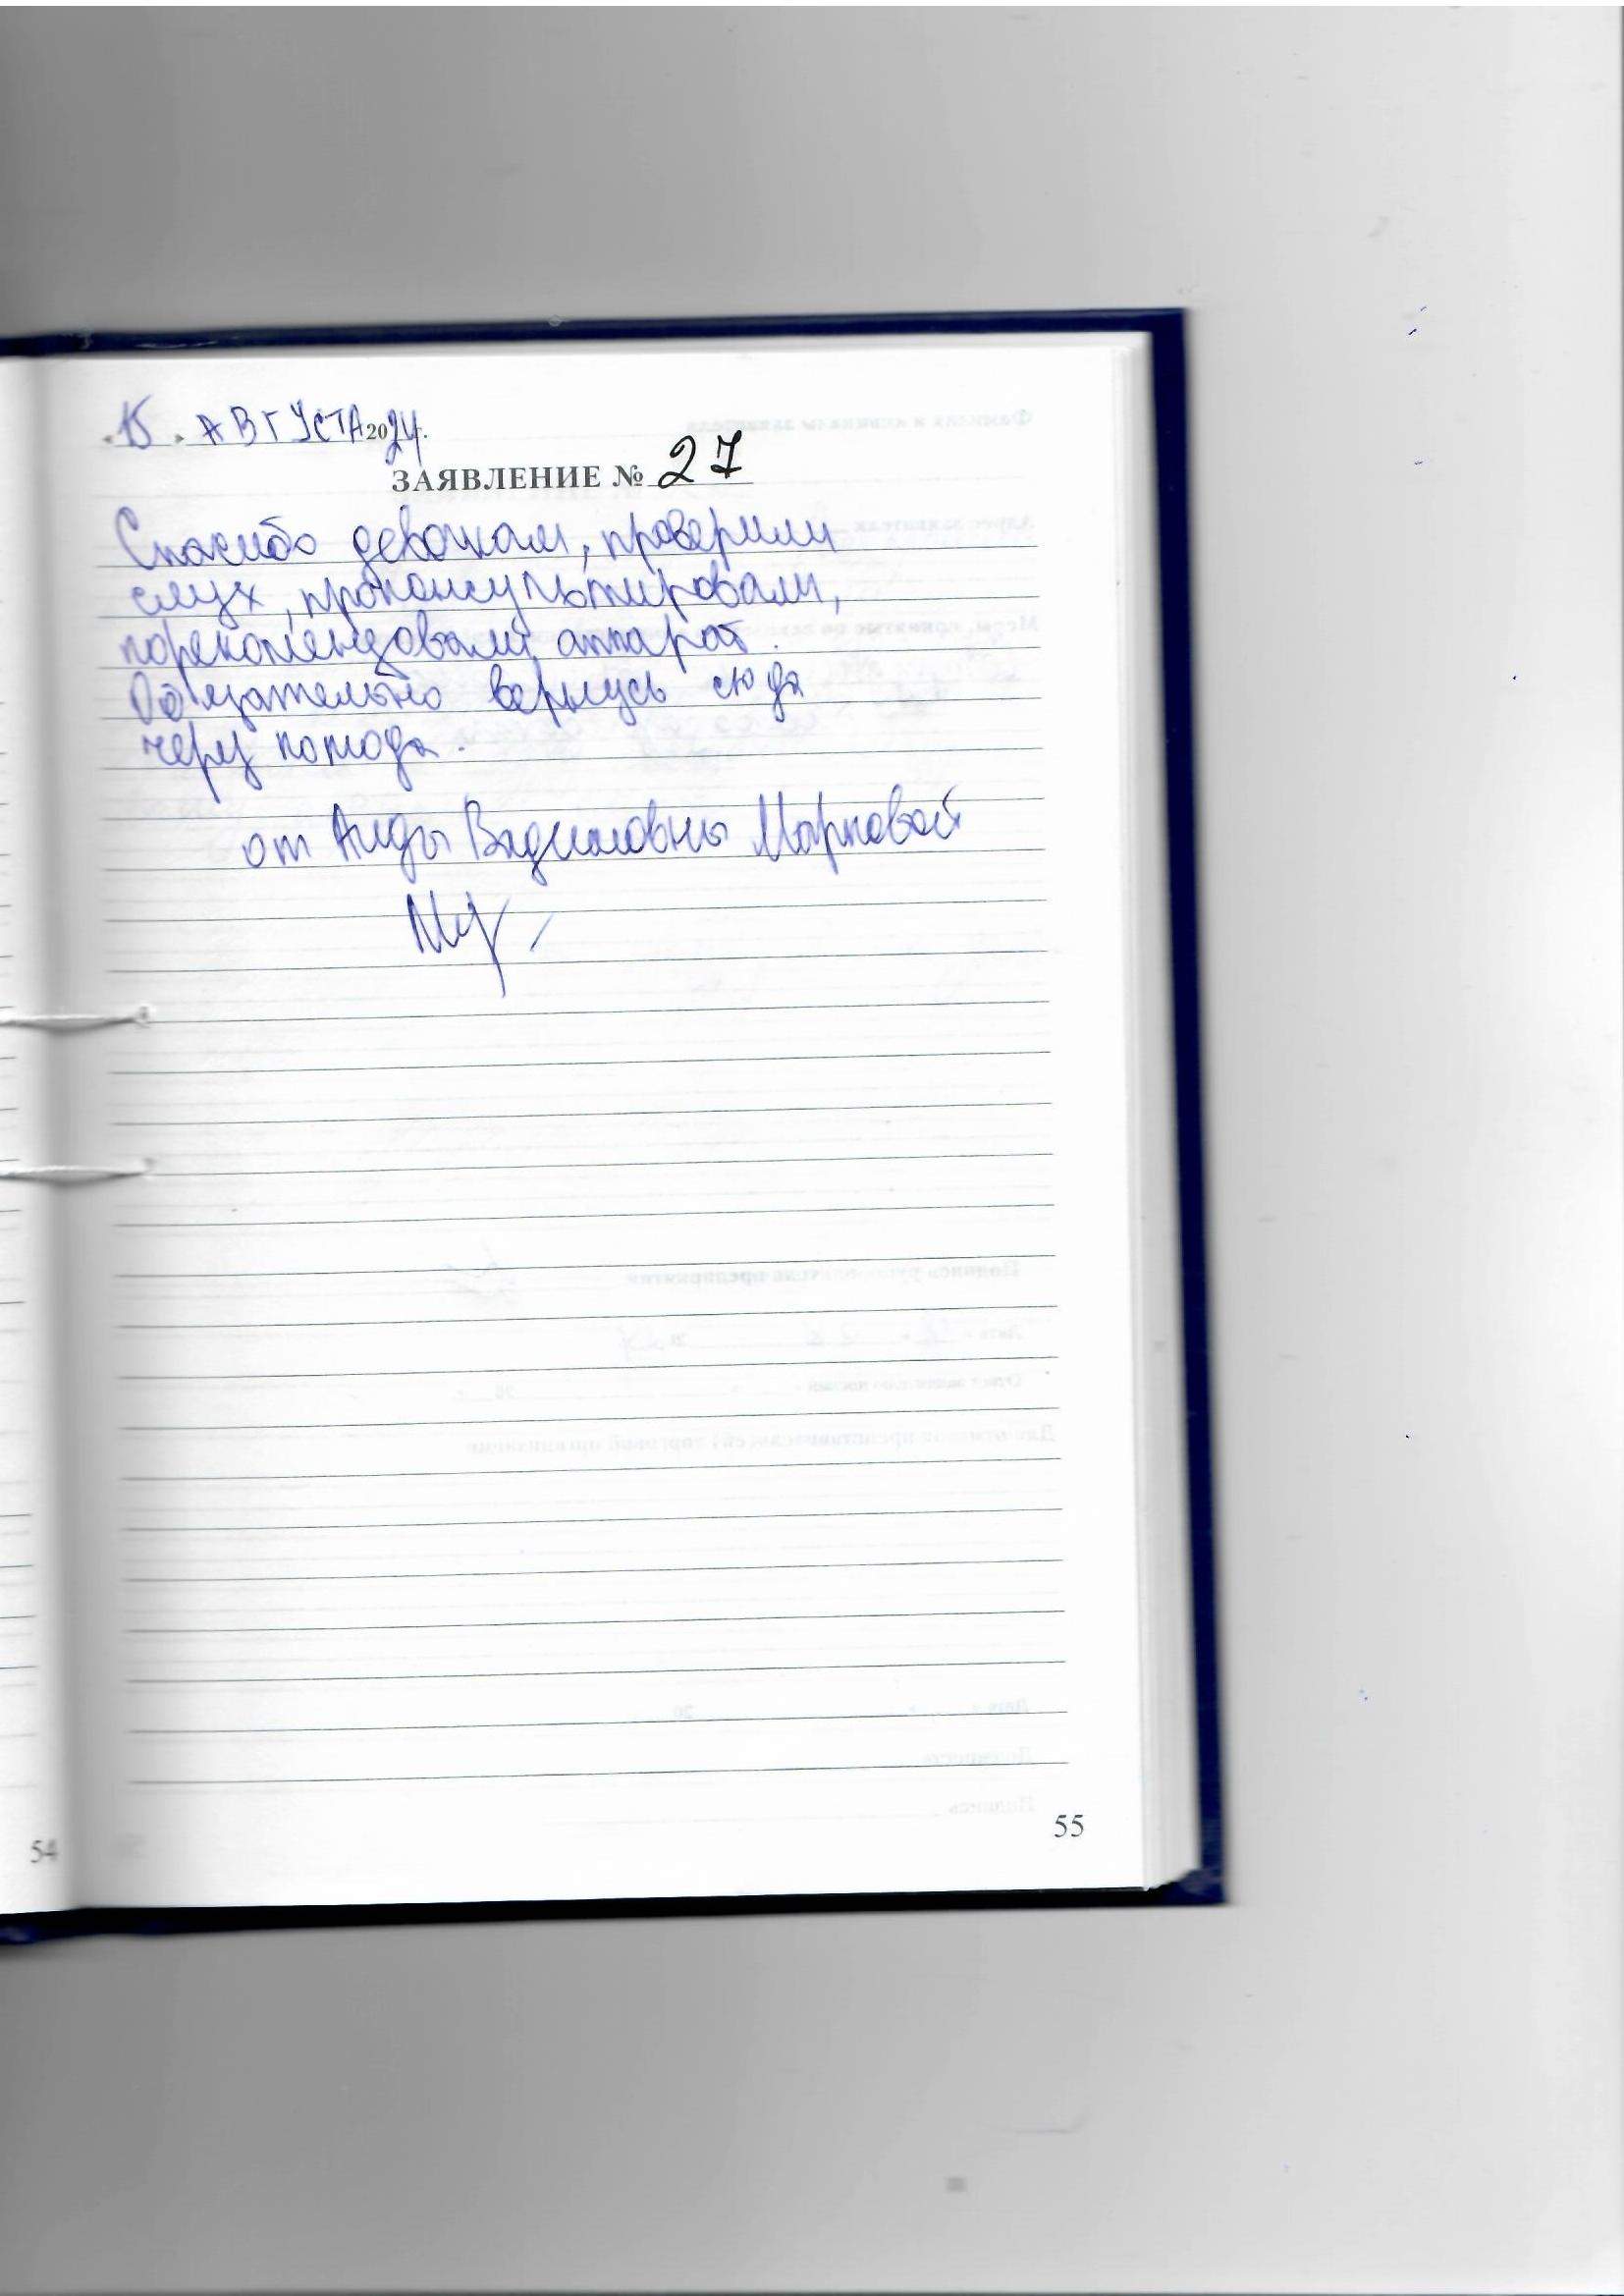 « 15 » АВГУСТА 2024 г.
ЗАЯВЛЕНИЕ № 27
Спасибо девочкам, проверили
слух, проконсультировали,
порекомендовали аппарат.
Обязательно вернусь сюда
через полгода.
от Аиды Вадимовны Марковой
54
55